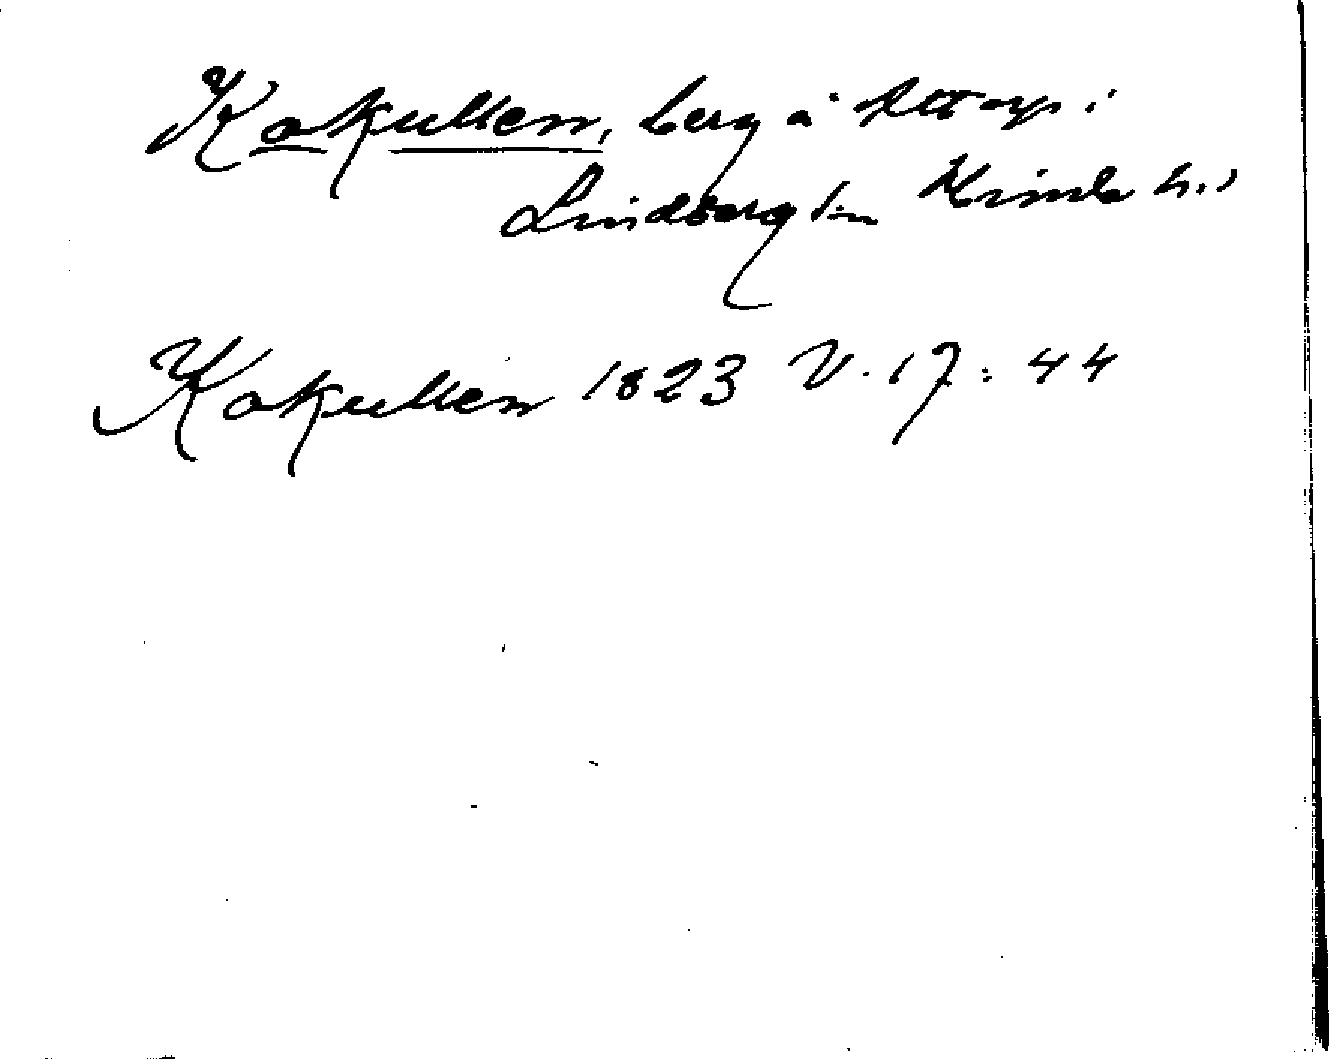 Kokullen, berg å Attorp i
Lindberg sn Himle h.
Kokullen 1823 V. 17: 44